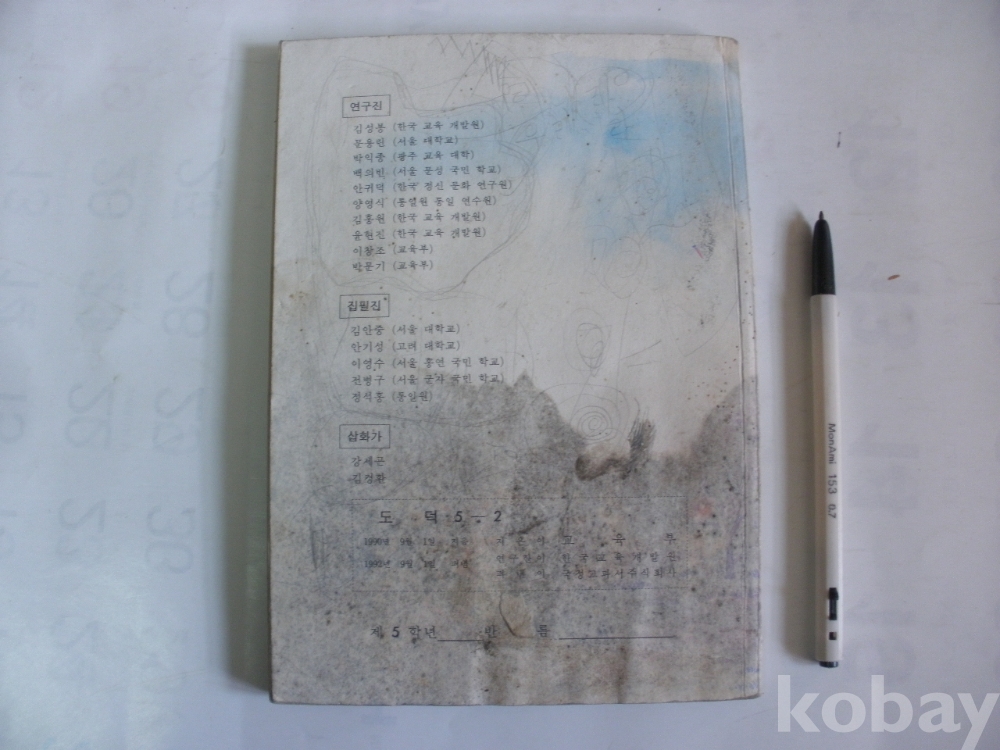 연구진
김성봉 (한국 교육 개발원)
문용린 (서울 대학교)
박익종 (광주 교육 대학)
백의현 (서울 문성 국민 학교)
안귀덕 (한국 정신 문화 연구원)
양영식 (통일원 통일 연수원)
김홍원 (한국 교육 개발원)
윤현진 (한국 교육 개발원)
이창조 (교육부)
박문기 (교육부)
집필진
김안중 (서울 대학교)
안기성 (고려 대학교)
이영수 (서울 홍연 국민 학교)
전병구 (서울 군자 국민 학교)
정석홍 (통일원)
삽화가
강세근
김경환
도 덕 5—2
1990년 9월 1일 지은이 교 육 부
연구 한국교육개발원
9월 1일 국정교과서주식회사
제 5 학년 반 름
MonAmi 153 0.7
kobay